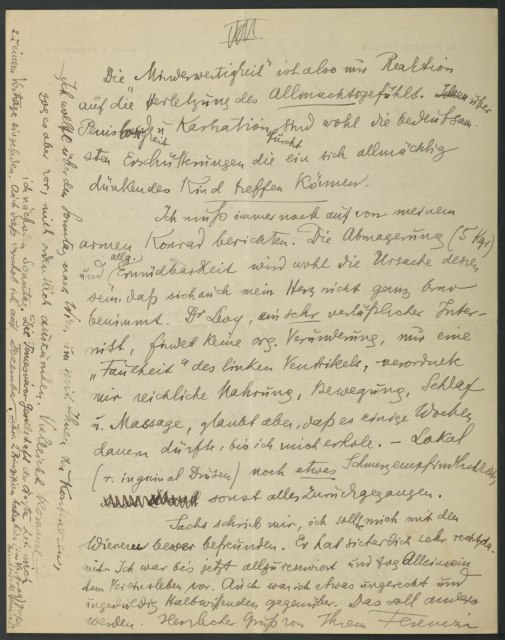 VIII.
Die „Minderwertigkeit" ist also nur Reaktion
auf die Verletzung des Allmachtsgefühls. über
Penis u Kastration sind wohl die bedeutsam
sten Erschütterungen die ein sich allmächtig
dünkendes Kind treffen können.
Ich muß immer noch auf von meinem
armen Konrad berichten. Die Abmagerung (5 Kg)
und allg. Ermüdbarkeit wird wohl die Ursache dessen
sein, daß sich auch mein Herz nicht ganz brav
benimmt. Dr Lévy, ein sehr verläßlicher Inter-
nist, findet keine org. Veränderung, nur eine
„Faulheit" des linken Ventrikels, – verordnete
mir reichliche Nahrung, Bewegung, Schlaf
u. Massage, glaubt aber, daß es einige Wochen
dauern dürfte, bis ich mich erhole. – Lokal
(r. inguinal Drüsen) noch etwas Schmerzempfindlichkeit,
sonst alles zurückgegangen.
Sachs schrieb mir, ich soll mich mit den
Wienern besser befreunden. Er hat sicherlich sehr recht da-
mit. Ich war bis jetzt allzu reserviert und zog Alleinsein
dem Vereinsleben vor. Auch war ich etwas ungerecht und
ungeduldig Halbwissenden gegenüber. Das soll anders
werden. Herzlicher Gruß von Ihrem Ferenczi
Ich wollte über den Sonntag nach Wien, um mit Ihnen zu konferieren,
zog es aber vor, mich ordentlich auszukurieren. Vielleicht komme
ich nächsten Sonntag. Die
zu einem Vortrage eingeladen.